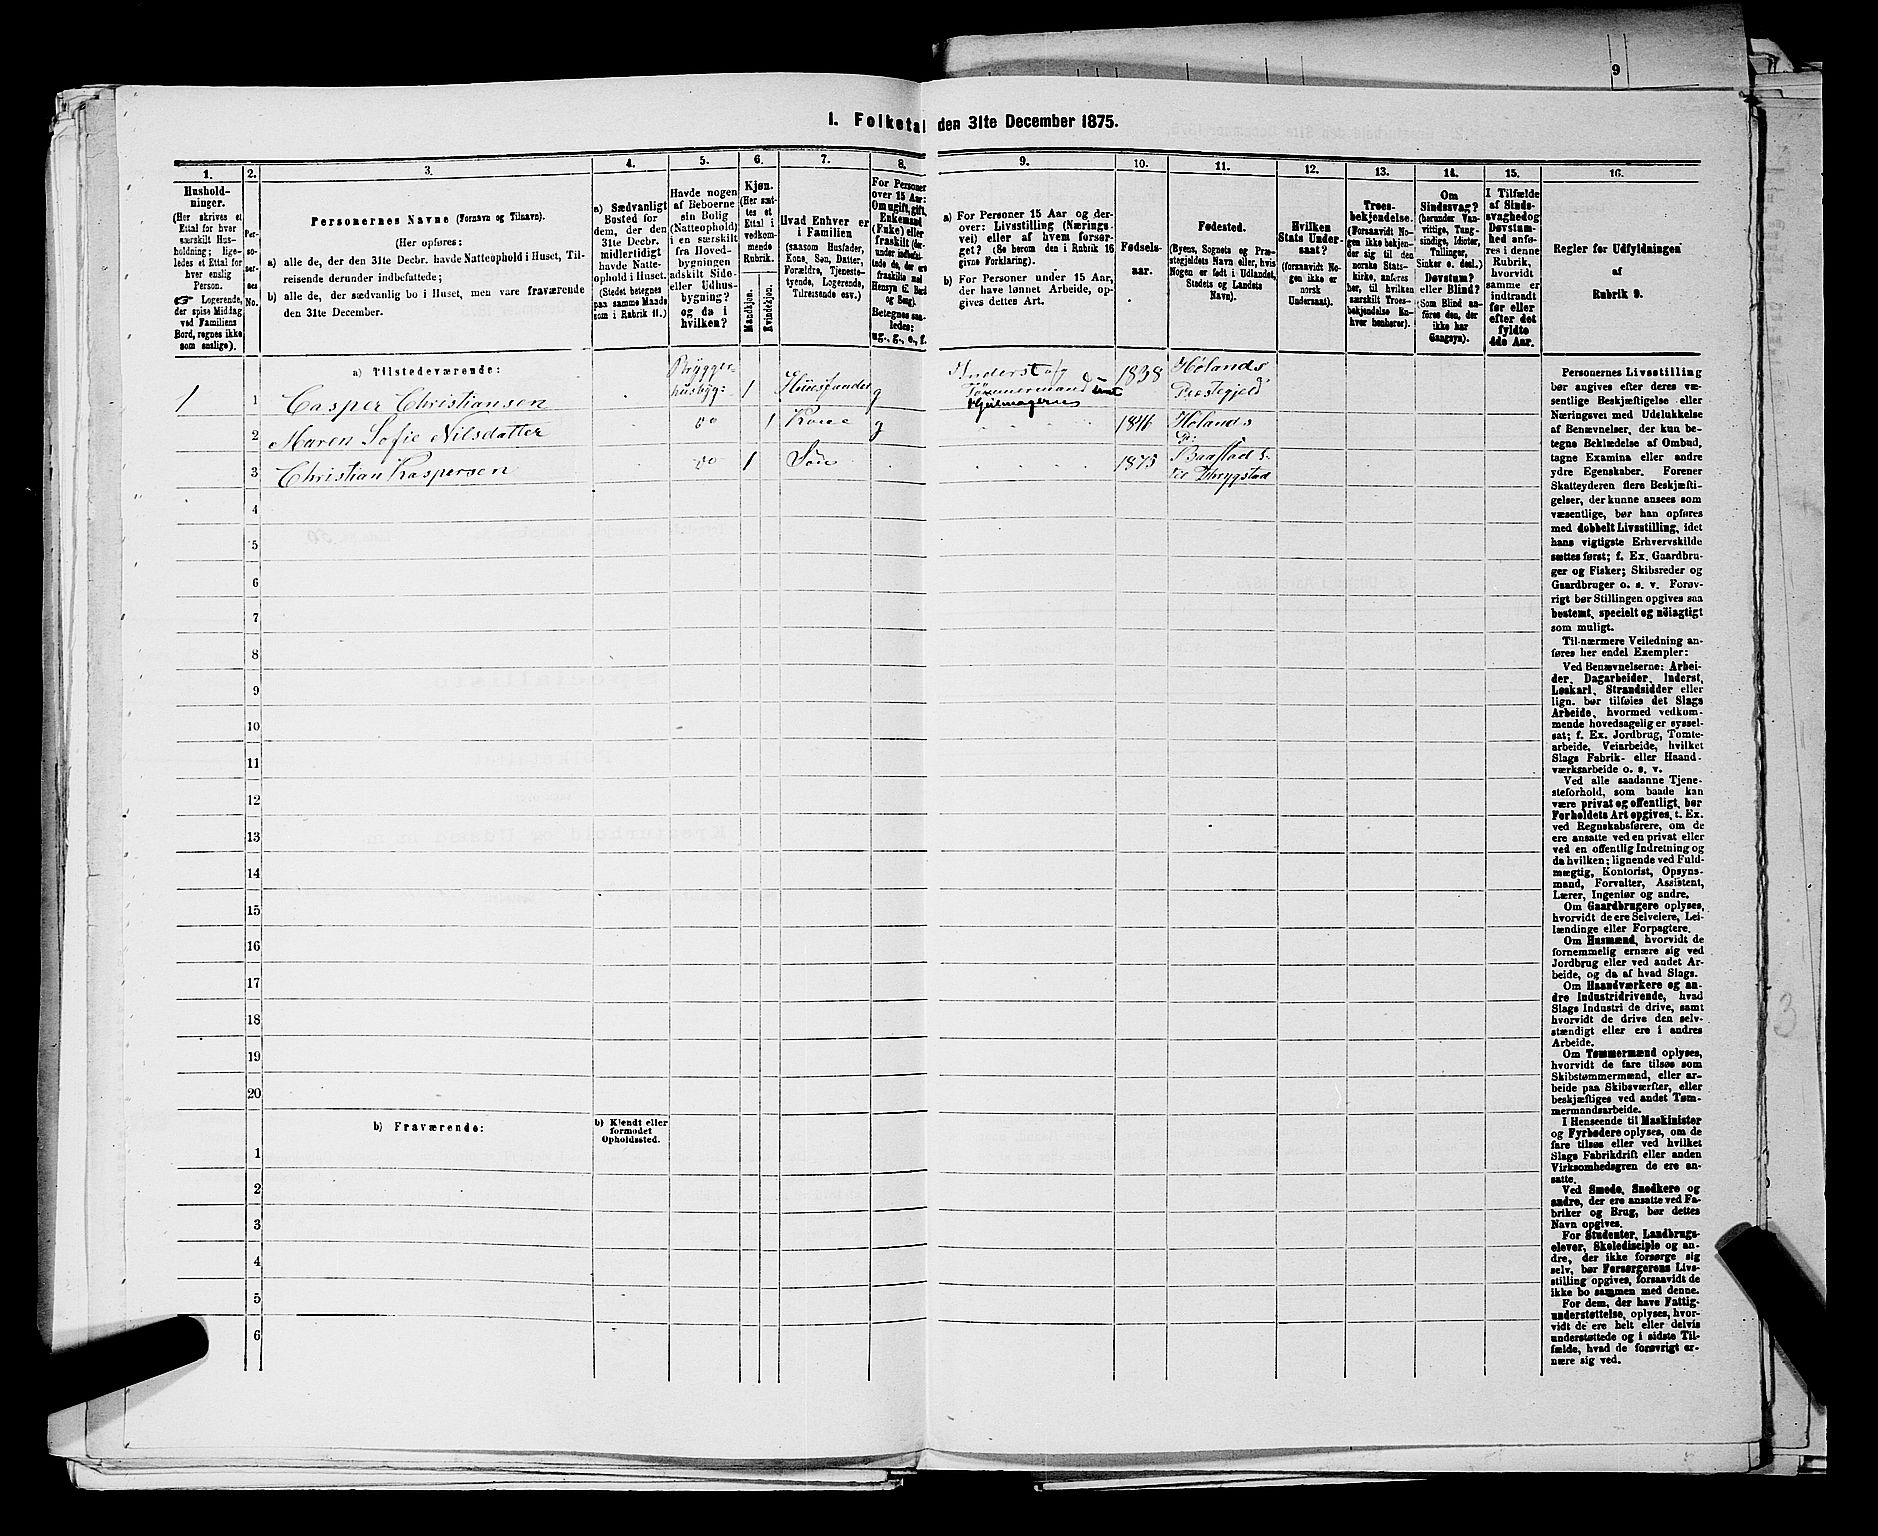 9
1. Folketal den 31te December 1875.
1.
2.
3.
4.
5.
6.
7.
8.
9.
10.
11.
12.
13.
14.
15.
16.
Hushold-
ninger.
(Her skrives et
Ettal for hver
særskilt Hus-
holdning; lige-
ledes et Ettal for
hver enslig
Person.
☞ Logerende,
der spise Middag
ved Familiens
Bord, regnes ikke
som enslige).
Per-
so-
ner-
nes
No.
Personernes Navne (Fornavn og Tilnavn).
(Her opføres:
a) alle de, der den 31te Decbr. havde Natteophold i Huset, Til-
reisende derunder indbefattede;
b) alle de, der sædvanlig bo i Huset, men vare fraværende
den 31te December.
a) Sædvanligt
Bosted for
dem, der den
31te Decbr.
midlertidigt
havde Natte-
ophold i Huset.
(Stedet betegnes
paa samme Maade
som i Rubrik 11.)
Havde nogen
af Beboerne
sin Bolig
(Natteophold)
i en særskilt
fra Hoved-
bygningen
adskilt Side-
eller Udhus-
bygning?
og da i
hvilken?
Kjøn.
(Her sæt-
tes et
Ettal i
vedkom-
mende
Rubrik.
Mandkjøn.
Kvindekjøn.
Hvad Enhver er
i Familien
(saasom Husfader,
Kone, Søn, Datter,
Forældre, Tjeneste-
tyende, Logerende,
Tilreisende osv.)
For Personer
over 15 Aar:
Om ugift, gift,
Enkemand
(Enke) eller
fraskilt (der-
under indbefat-
tede de, der ere
fraskilte med
Hensyn til Bord
og Seng).
Betegnes saa-
ledes:
ug., g., e., f.
a) For Personer 15 Aar og der-
over: Livsstilling (Nærings-
vei) eller af hvem forsør-
get? (Se herom den i Rubrik 16
givne Forklaring).
b) For Personer under 15 Aar,
der have lønnet Arbeide, op-
gives dettes Art.
Fødsels-
aar.
Fødested.
(Byens, Sognets og Præ-
stegjeldets Navn eller, hvis
Nogen er født i Udlandet,
Stedets og Landets
Navn).
Hvilken
Stats Under-
saat?
(forsaavidt No-
gen ikke er
norsk
Undersaat).
Troes-
bekjendelse.
(Forsaavidt No-
gen ikke bekjen-
der sig til den
norske Stats-
kirke, anføres
her, til hvilken
særskilt Troes-
bekjendelse En-
hver henhører).
Om
Sindssvag?
(herunder Van-
vittige, Tung-
sindige, Idioter,
Tullinger,
Sinker o. desl.)
Døvstum?
eller Blind?
(Som Blind an-
føres den, der
ikke har
Gangsyn).
I Tilfælde
af Sinds-
svaghed og
Døvstum-
hed anfø-
res i denne
Rubrik,
hvorvidt
samme er
indtraadt
før eller
efter det
fyldte
4de Aar.
Regler for Udfyldningen
af
Rubrik 9.
a) Tilstedeværende:
1 1 Casper Christiansen Brygger-husbyg: 1 Huusfader g Inderst af Tømmermand samt Hjulmager 1838 Hølands Præstegjeld
2 Maren Sofie Nilsdatter do 1 Kone g 1846 Hølands Pr:
3 Christian Kaspersen do 1 Søn 1875 Baastad S.
4
5
6
7
8
9
10
11
12
13
14
15
16
17
18
19
20
b) Fraværende:
b) Kjendt eller
formodet
Opholdssted.
1
2
3
4
5
6
Personernes Livsstilling
bør angives efter deres væ-
sentlige Beskjæftigelse eller
Næringsvei med Udelukkelse
af Benævnelser, der kun be-
tegne Beklædelse af Ombud,
tagne Examina eller andre
ydre Egenskaber. Forener
Skatteyderen flere Beskjæfti-
gelser, der kunne ansees som
væsentlige, bør han opføres
med dobbelt Livsstilling, idet
hans vigtigste Erhvervskilde
sættes først; f. Ex. Gaardbru-
ger og Fisker; Skibsreder og
Gaardbruger o. s. v. Forøv-
rigt bør Stillingen opgives saa
bestemt, specielt og nöiagtigt
som muligt.
Til nærmere Veiledning an-
føres her endel Exempler:
Ved Benævnelserne: Arbei-
der, Dagarbeider, Inderst,
Løskarl, Strandsidder eller
lign. bør tilføies det Slags
Arbeide, hvormed vedkom-
mende hovedsagelig er syssel-
sat; f. Ex. Jordbrug, Tomte-
arbeide, Veiarbeide, hvilket
Slags Fabrik- eller Haand-
værksarbeide o. s. v.
Ved alle saadanne Tjene-
steforhold, som baade kan
være privat og offentligt, bør
Forholdets Art opgives, t. Ex.
ved Regnskabsførere, om de
ere ansatte ved en privat eller
ved en offentlig Indretning og
da hvilken; lignende ved Fuld-
mægtig, Kontorist, Opsyns-
mand, Forvalter, Assistent,
Lærer, Ingeniør og andre.
Om Gaardbrugere oplyses,
hvorvidt de ere Selveiere, Lei-
lændinge eller Forpagtere.
Om Husmænd, hvorvidt de
fornemmelig ernære sig ved
Jordbrug eller ved andet Ar-
beide, og da af hvad Slags.
Om Haandværkere og an-
dre Industridrivende, hvad
Slags Industri de drive, samt
hvorvidt de drive den selv-
stændigt eller ere i andres
Arbeide.
Om Tømmermænd oplyses,
hvorvidt de fare tilsøs som
Skibstømmermænd, eller ar-
beide paa Skibsværfter, eller
beskjæftiges ved andet Tøm-
mermandsarbeide.
I Henseende til Maskinister
og Fyrbødere oplyses, om de
fare tilsøs eller ved hvilket
Slags Fabrikdrift eller anden
Virksomhedsgren de ere an-
satte.
Ved Smede, Snedkere og
andre, der ere ansatte ved Fa-
briker og Brug, bør dettes
Navn opgives.
For Studenter, Landbrugs-
elever, Skoledisciple og an-
dre, der ikke forsørge sig
selv, bør Forsørgerens Livs-
stilling opgives, forsaavidt de
ikke bo sammen med denne.
For dem, der have Fattig-
understøttelse, oplyses, hvor-
vidt de ere helt eller delvis
understøttede og i sidste Til-
fælde, hvad de forøvrigt er-
nære sig ved.
3